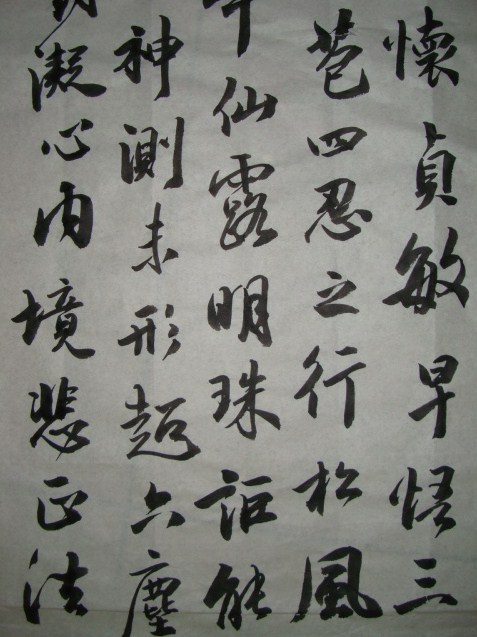 懷貞敏早悟三
苞四忍之行松風
仙露明珠詎能
神測未形超六塵
凝心内境悲正法